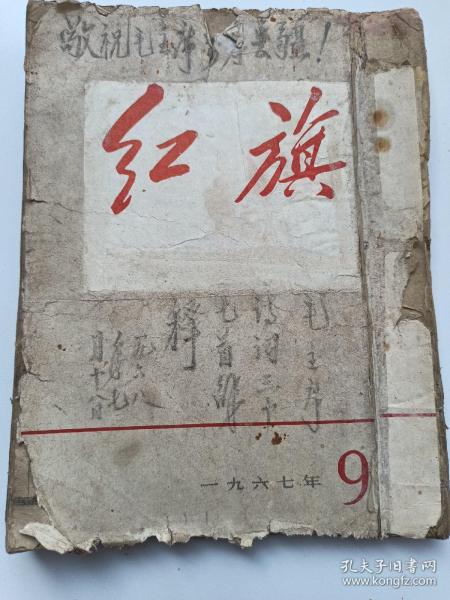 敬祝毛主席万寿无疆！
红旗
毛主席
诗词三十
七首解
释
一九六八
年七
月十八日
一九六七年 9
孔夫子旧书网
www.kongfz.com